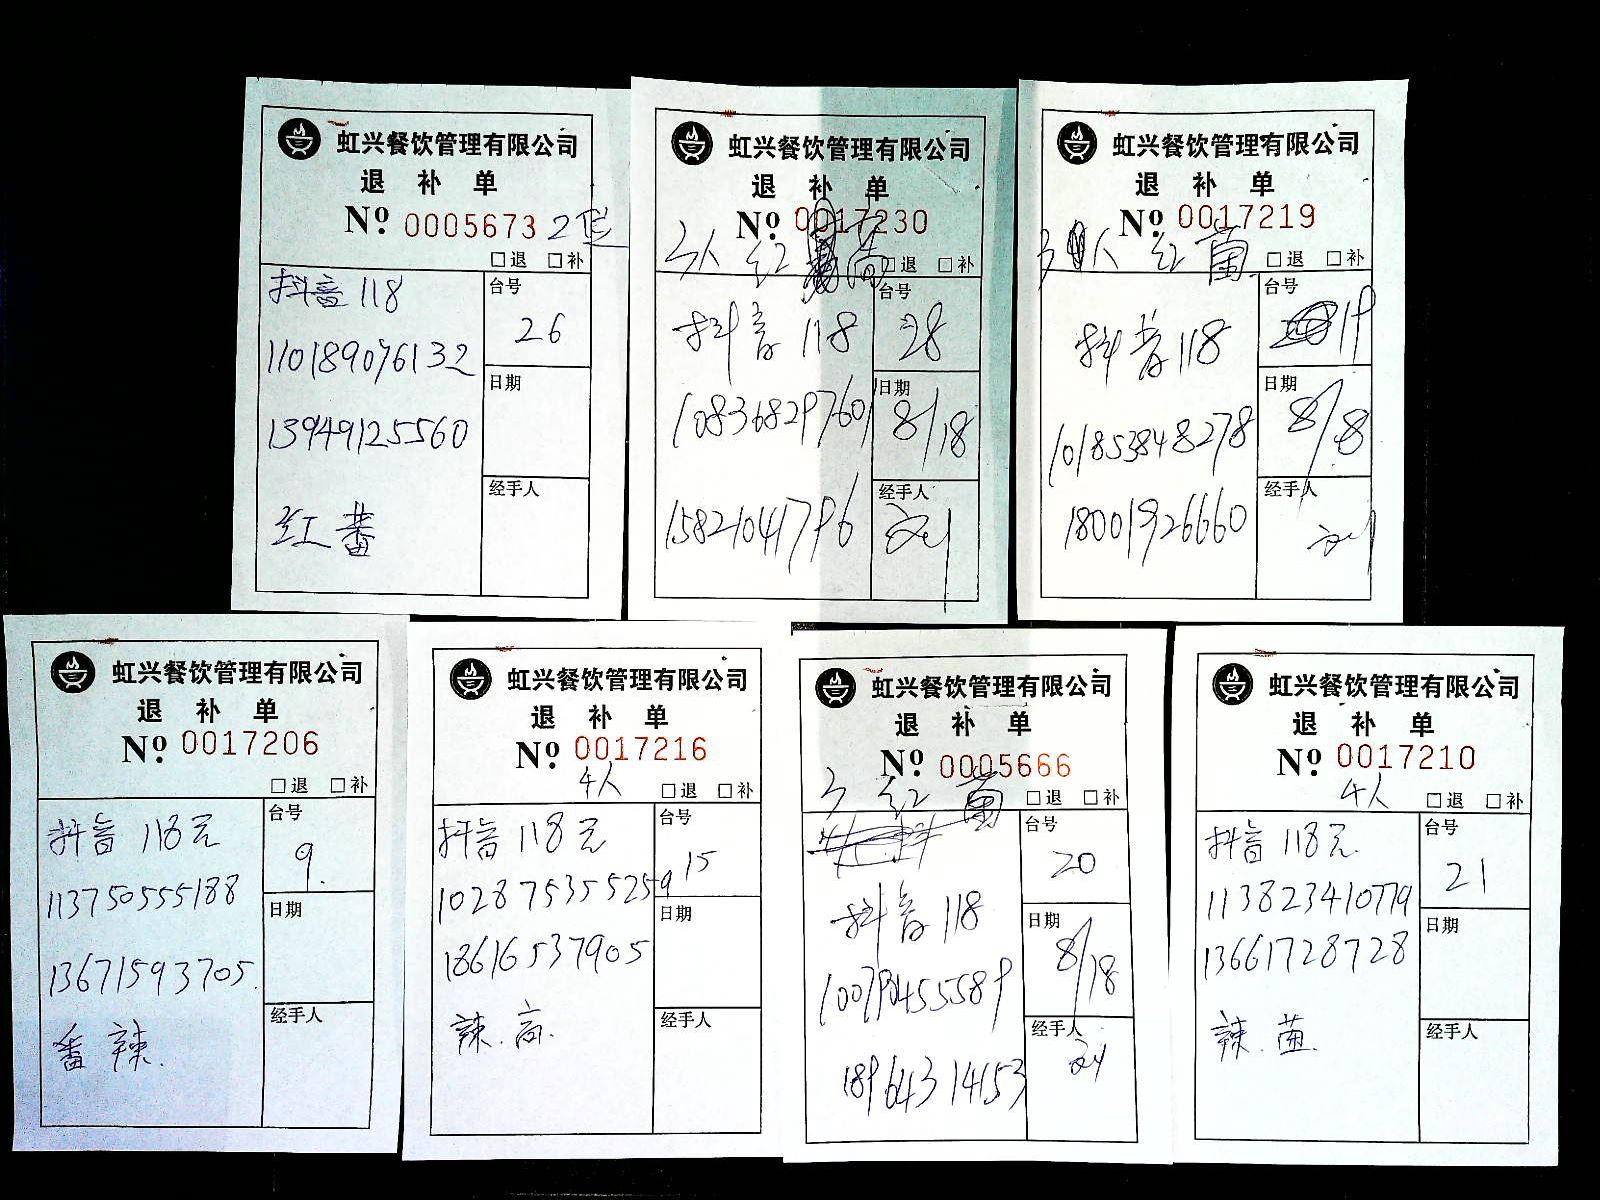 虹兴餐饮管理有限公司
退 补 单
№ 0005673 2位
□退 □补
抖音118
台号
26
110189076132
日期
13949125560
经手人
红番
虹兴餐饮管理有限公司
退 补 单
№ 0017230
3人 红
□退 □补
抖音 118
台号
28
108368297601
日期
8/18
15821041796
经手人
刘
虹兴餐饮管理有限公司
退 补 单
№ 0017219
3人 红菌
□退 □补
抖音118
台号
19
101853848278
日期
8/18
18001926660
经手人
刘
虹兴餐饮管理有限公司
退 补 单
№ 0017206
□退 □补
抖音 118元
台号
9.
113750555188
日期
13671593705.
经手人
番 辣.
虹兴餐饮管理有限公司
退 补 单
№ 0017216
4人
□退 □补
抖音118元
台号
15
102875355259
日期
18616537905
辣.
经手人
虹兴餐饮管理有限公司
退 补 单
№ 0005666
3 红 菌
□退 □补
台号
20
抖音118
日期
8/18
18964314153
经手人
刘
虹兴餐饮管理有限公司
退 补 单
№ 0017210
4人
□退 □补
抖音118元.
台号
21
113823410779
日期
13661728728
辣.菌.
经手人